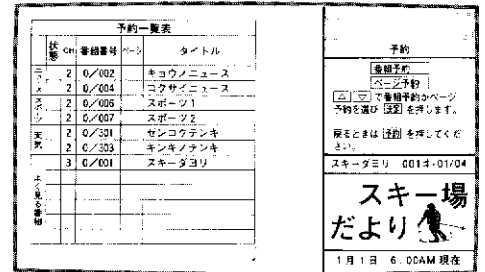 予約一覧表
状態 CH 番組番号 ページ タイトル
ニュース
2 0/002 キョウノニュース
2 0/004 コクサイニュース
スポーツ
2 0/006 スポーツ1
2 0/007 スポーツ2
天気
2 0/301 ゼンコクテンキ
2 0/303 キンキノテンキ
3 0/001 スキーダヨリ
よく見る番組
予約
番組予約
ページ予約
△ ▽ で番組予約かページ
予約を選び 決定 を押します。
戻るときは 予約 を押してくだ
さい。
スキーダヨリ 001‡-01/04
スキー場
だより
1月1日 6.00AM 現在